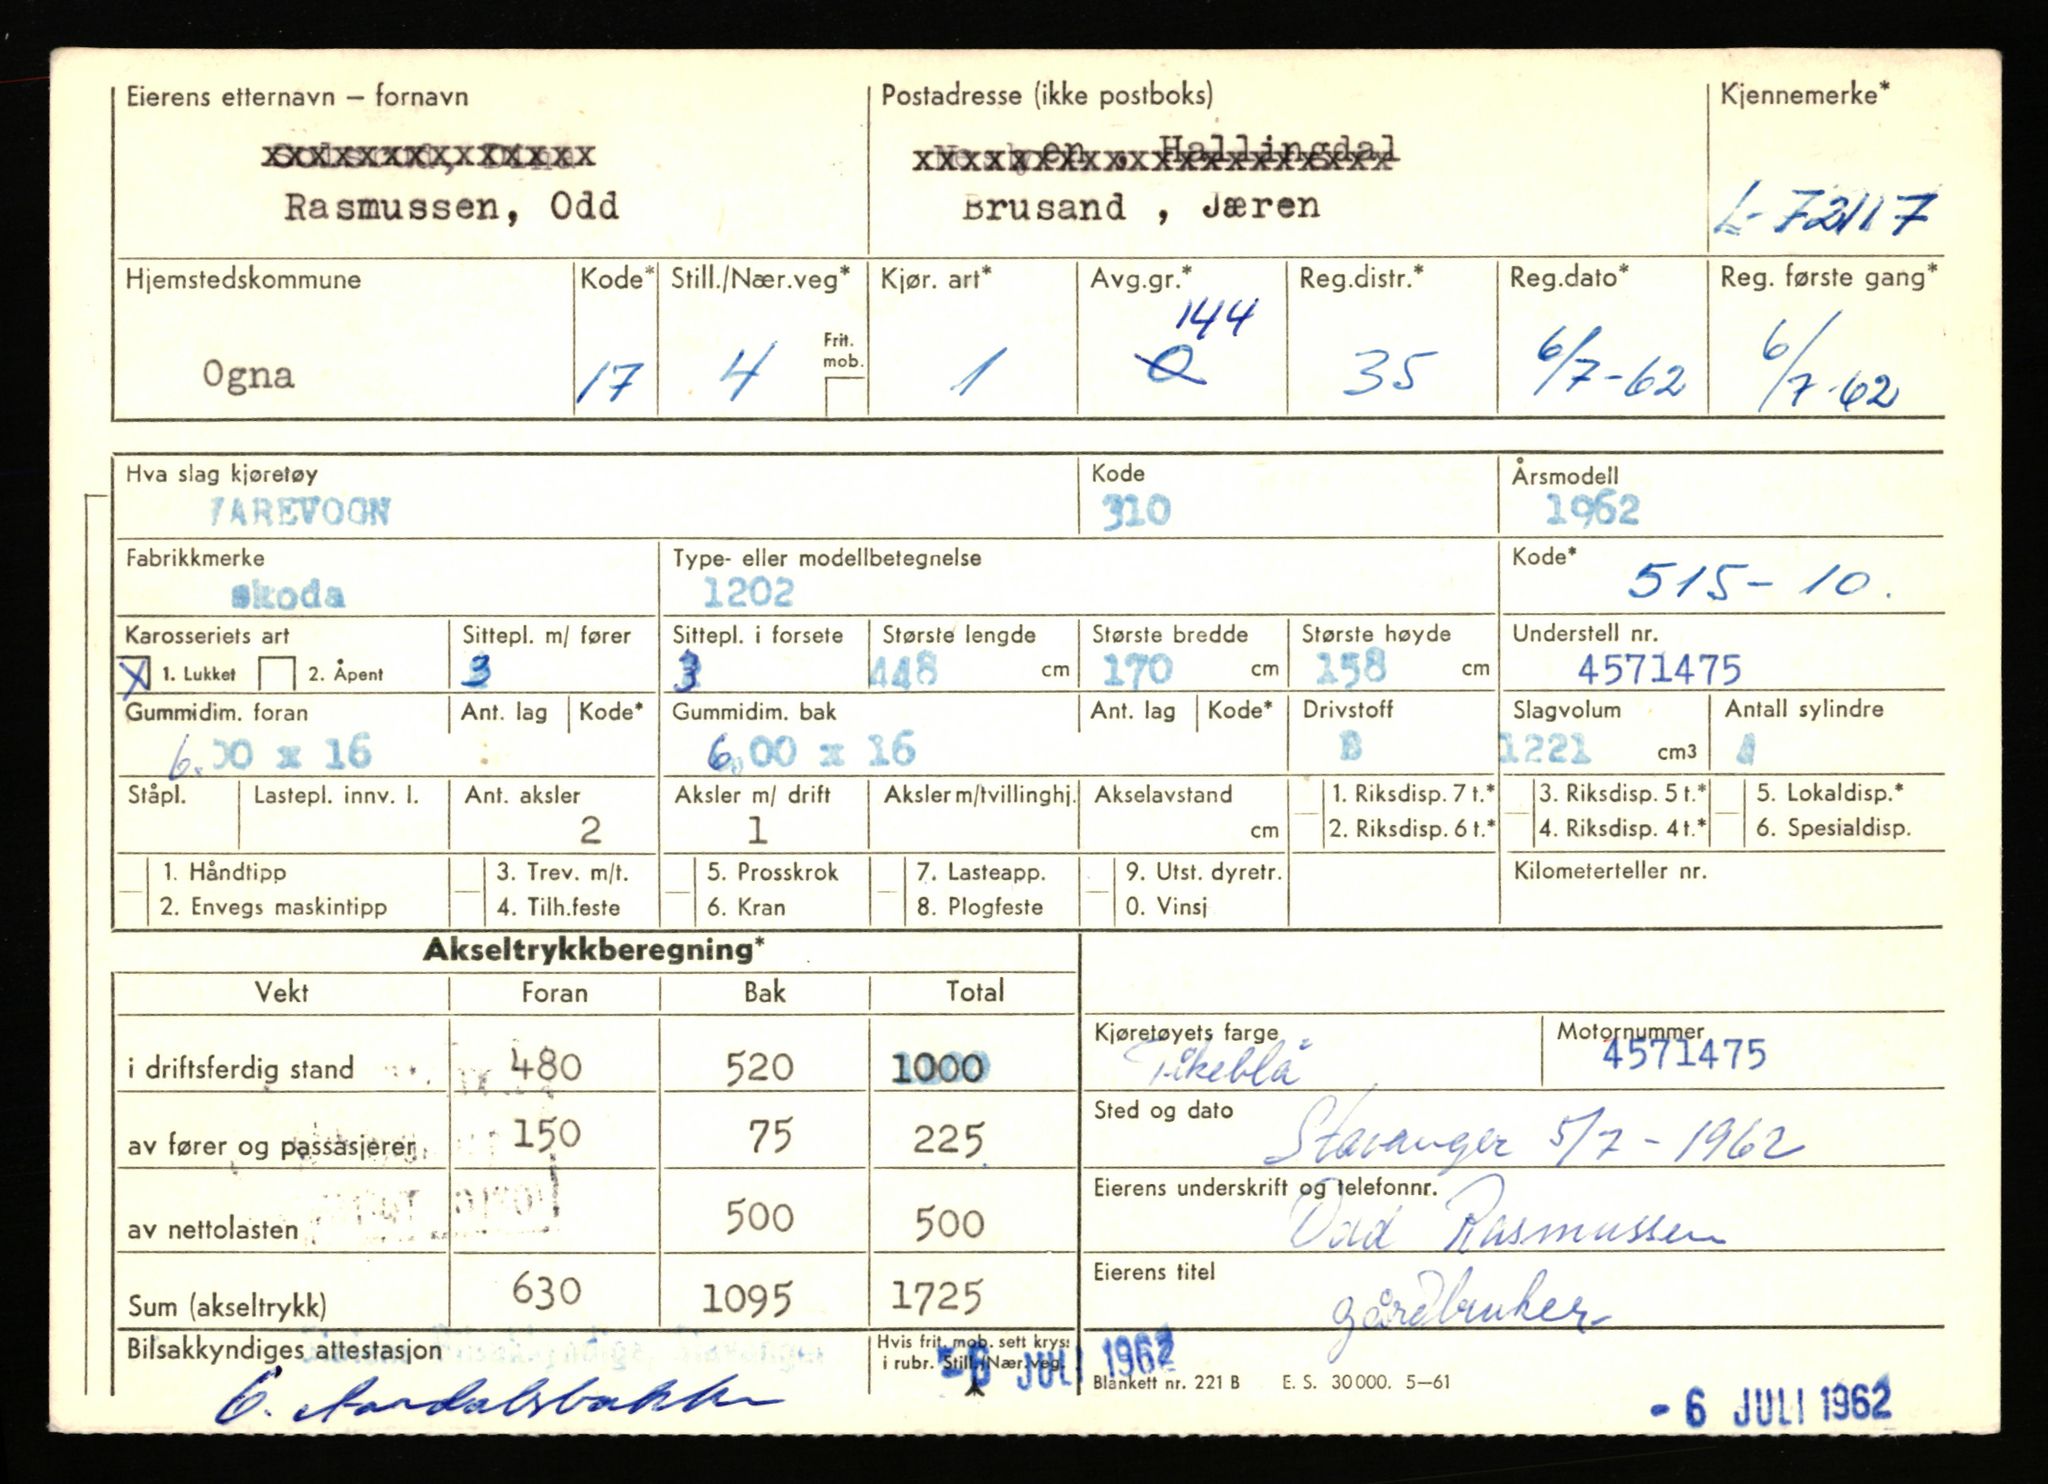 Eierens etternavn – fornavn
Postadresse (ikke postboks)
Kjennemerke*
Hallingdal
Rasmussen, Odd
Brusand , Jæren
L-72117
Hjemstedskommune
Kode*
Still./Nær.veg*
Kjør. art*
Avg.gr.*
Reg.distr.*
Reg.dato*
Reg. første gang*
144
Frit. mob.
Ogna
17
4
1
0
35
6/7-62
6/7-62
Hva slag kjøretøy
Kode
Årsmodell
VAREVOGN
310
1962
Fabrikkmerke
Type- eller modellbetegnelse
Kode*
skoda
1202
515-10.
Karosseriets art
Sittepl. m/ fører
Sittepl. i forsete
Største lengde
Største bredde
Største høyde
Understell nr.
X 1. Lukket
2. Åpent
3
3
448 cm
170 cm
158 cm
4571475
Gummidim. foran
Ant. lag
Kode*
Gummidim. bak
Ant. lag
Kode*
Drivstoff
Slagvolum
Antall sylindre
6.00 x 16
6.00 x 16
B
1221 cm3
4
Ståpl.
Lastepl. innv. l.
Ant. aksler
Aksler m/ drift
Aksler m/tvillinghj.
Akselavstand
1. Riksdisp. 7 t.*
3. Riksdisp. 5 t.*
5. Lokaldisp.*
2
1
cm
2. Riksdisp. 6 t.*
4. Riksdisp. 4 t.*
6. Spesialdisp.
1. Håndtipp
3. Trev. m/t.
5. Prosskrok
7. Lasteapp.
9. Utst. dyretr.
Kilometerteller nr.
2. Envegs maskintipp
4. Tilh.feste
6. Kran
8. Plogfeste
0. Vinsj
Akseltrykkberegning*
Vekt
Foran
Bak
Total
i driftsferdig stand
480
520
1000
av fører og passasjerer
150
75
225
av nettolasten
500
500
Sum (akseltrykk)
630
1095
1725
Kjøretøyets farge
Motornummer
4571475
Sted og dato
Stavanger 5/7-1962
Eierens underskrift og telefonnr.
Odd Rasmussen
Eierens titel
gårdbruker
Bilsakkyndiges attestasjon
Hvis frit. mob. sett kryss
i rubr. Still./Nær.veg.
-6 JULI 1962
Blankett nr. 221 B
E. S. 30000. 5–61
- 6 JULI 1962